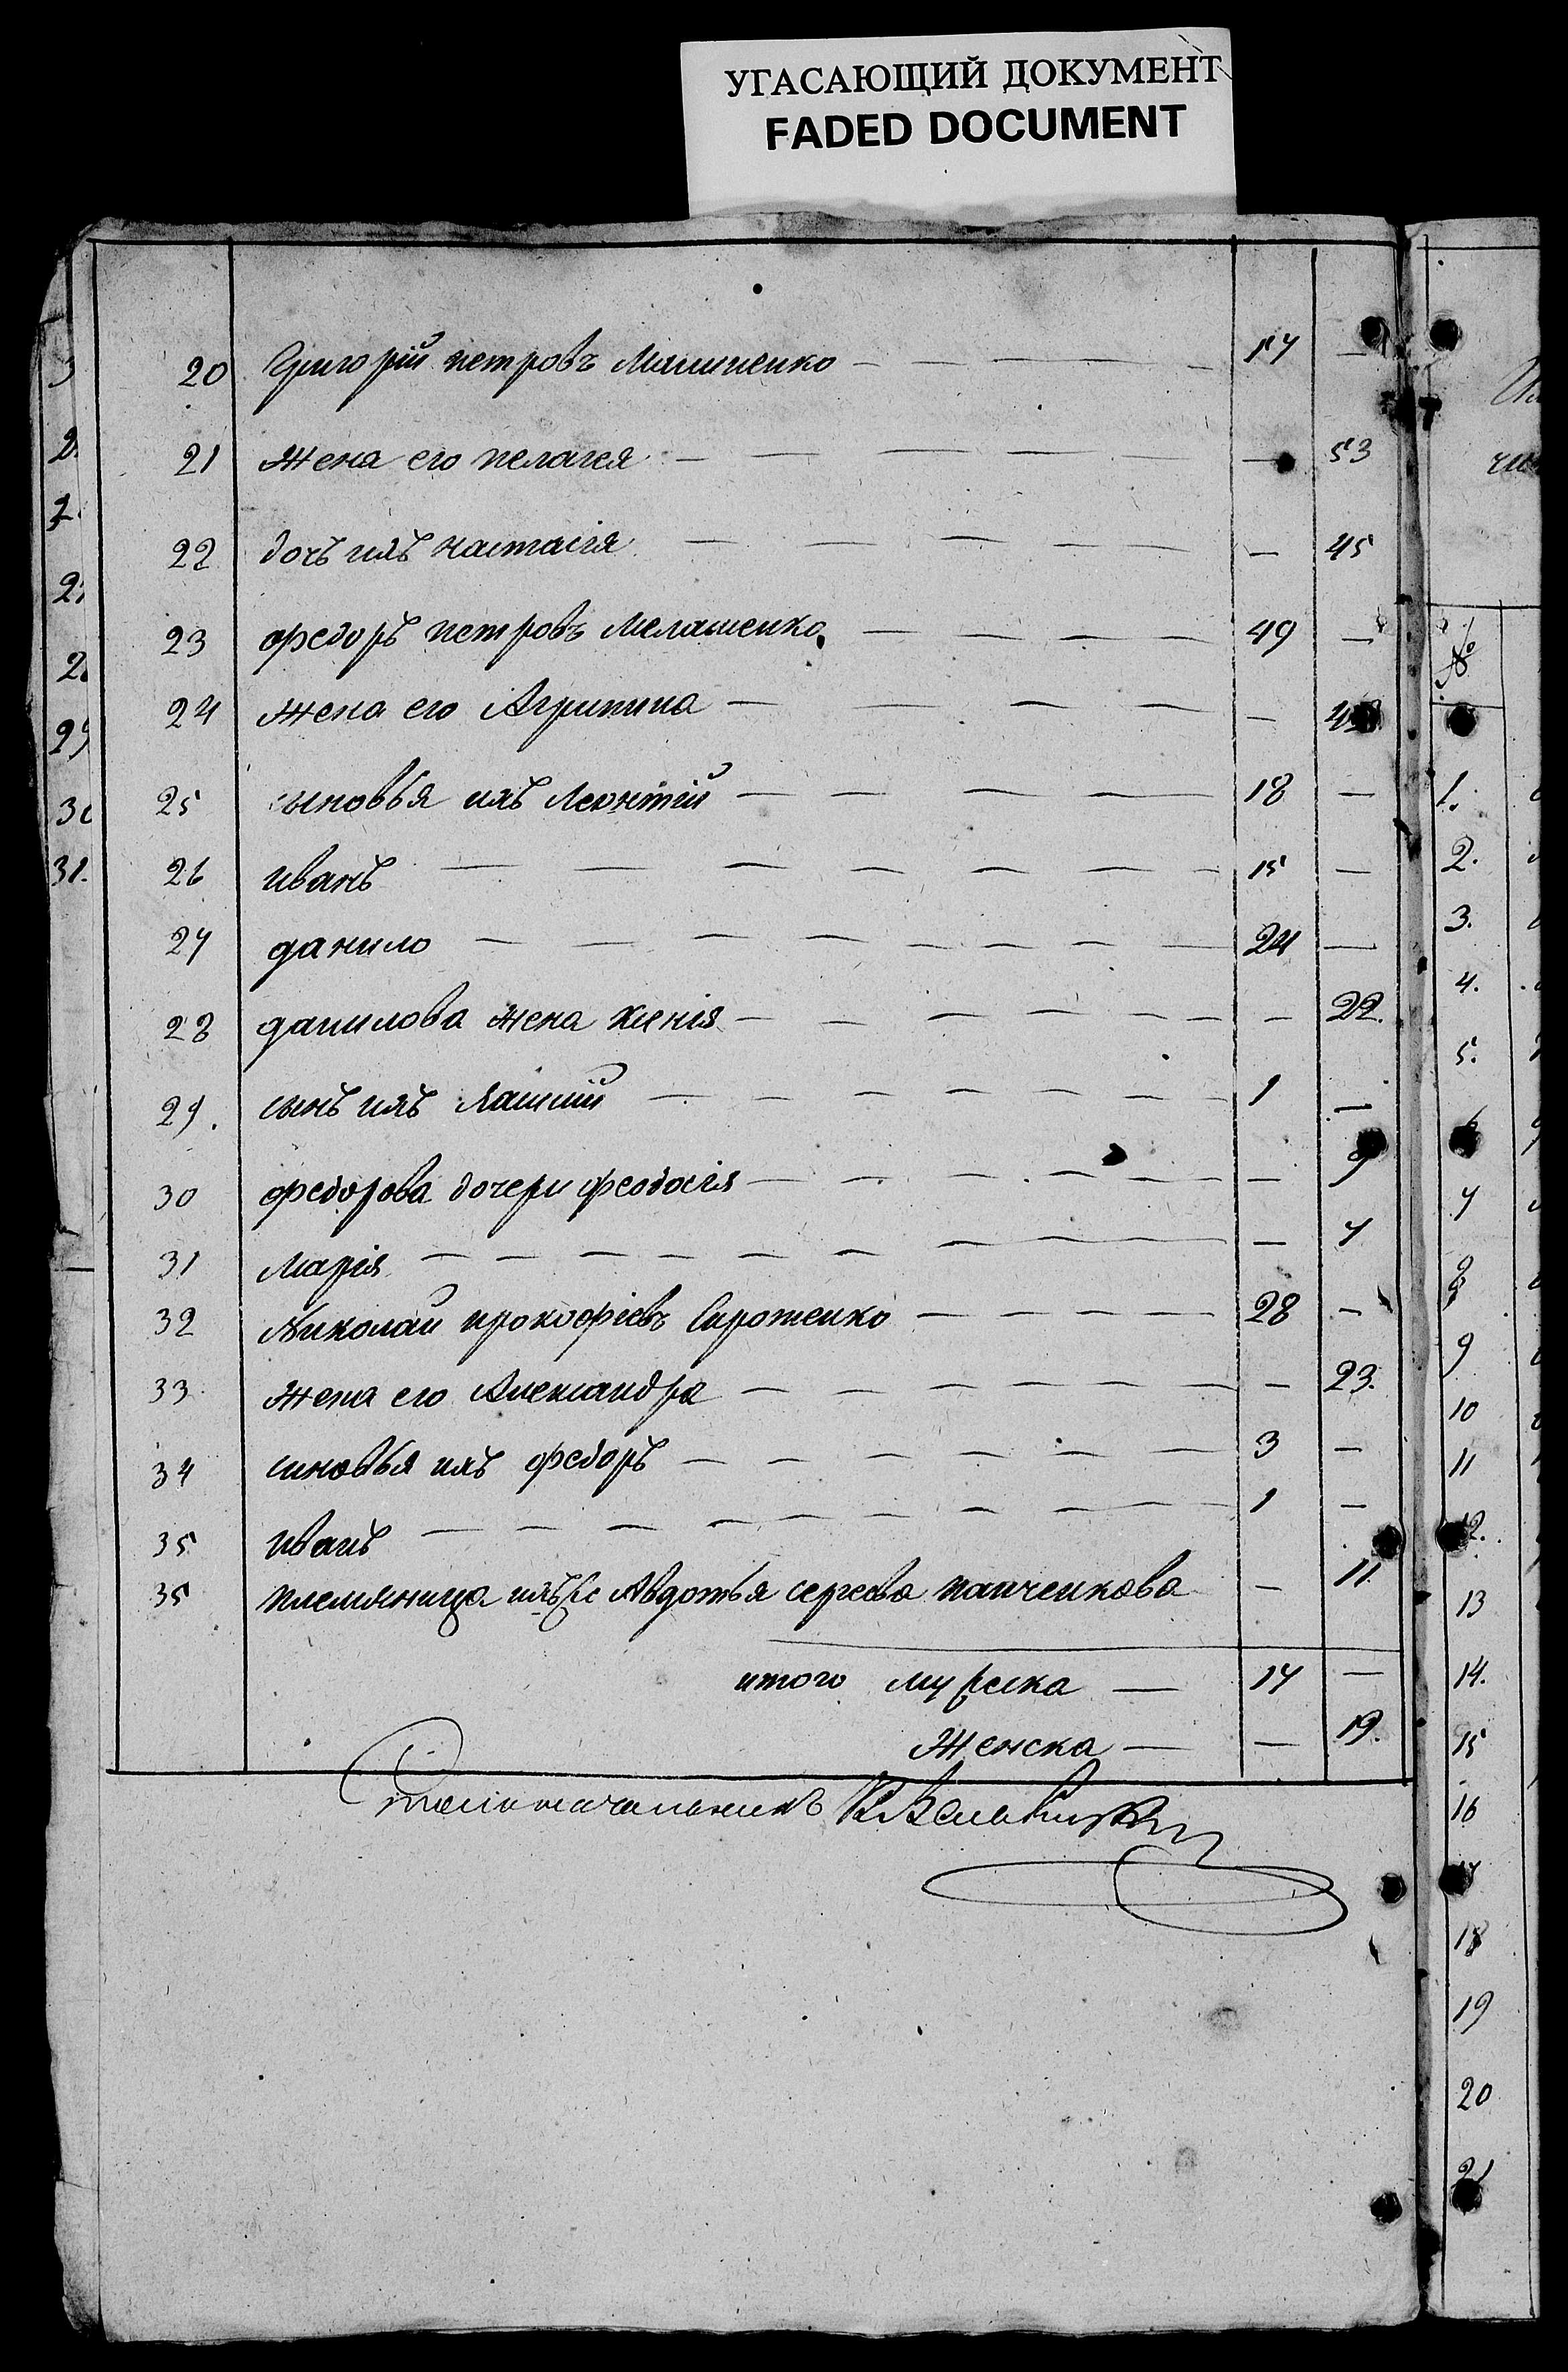 УГАСАЮЩИЙ ДОКУМЕНТ
FADED DOCUMENT
20 Григорій петровъ Малашенко — 57 —
21 Жена его пелагея — — 53
22 дочь ихъ настасія — — 45
23 федоръ петровъ Мелашенко — 49 —
24 Жена его Агрипина — —
25 сыновья ихъ Леонтій — 18 —
26 иванъ — 15 —
27 данило — 24 —
28 данилова жена Ксенія — — 22.
29. сынъ ихъ — 1 —
30 федорова дочери феодосія — — 9
31 Марія — — 7
32 Николай прокофіевъ Сиротенко — 28 —
33 Жена его Александра — — 23.
34 синовья ихъ федоръ — 3 —
35 иванъ — 1 —
35 племяница ихъ Авдотья сергева панченкова — 11
итого мужска — 17 —
Женска — — 19.
Столоначальникъ
№
1.
2.
3.
4.
5.
6
7
8
9
10
11
12.
13
14.
15
16
17
18
19
20
21